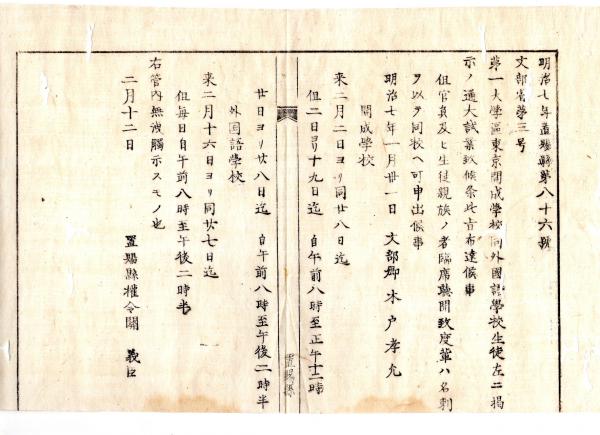 明治七年置賜縣第八十六號
文部省第三号
第一大學區東京開成學校同外國語學校生徒左ニ掲
示ノ通大試業致候条此旨布達候事
但官員及ヒ生徒親族ノ者臨席興聞致度輩ハ名刺
ヲ以テ同校ヘ可申出候事
明治七年一月卅一日 文部卿木戸孝允
開成學校
来二月二日ヨリ同廿八日迄
但二日ヨリ十九日迄 自午前八時至正午十二時
置賜縣
廿日ヨリ廿八日迄 自午前八時至午後二時半
外国語學校
来二月十六日ヨリ同廿七日迄
但毎日自午前八時至午後二時半
右管内無洩觸示スモノ也
二月十二日 置賜縣權令關 義臣